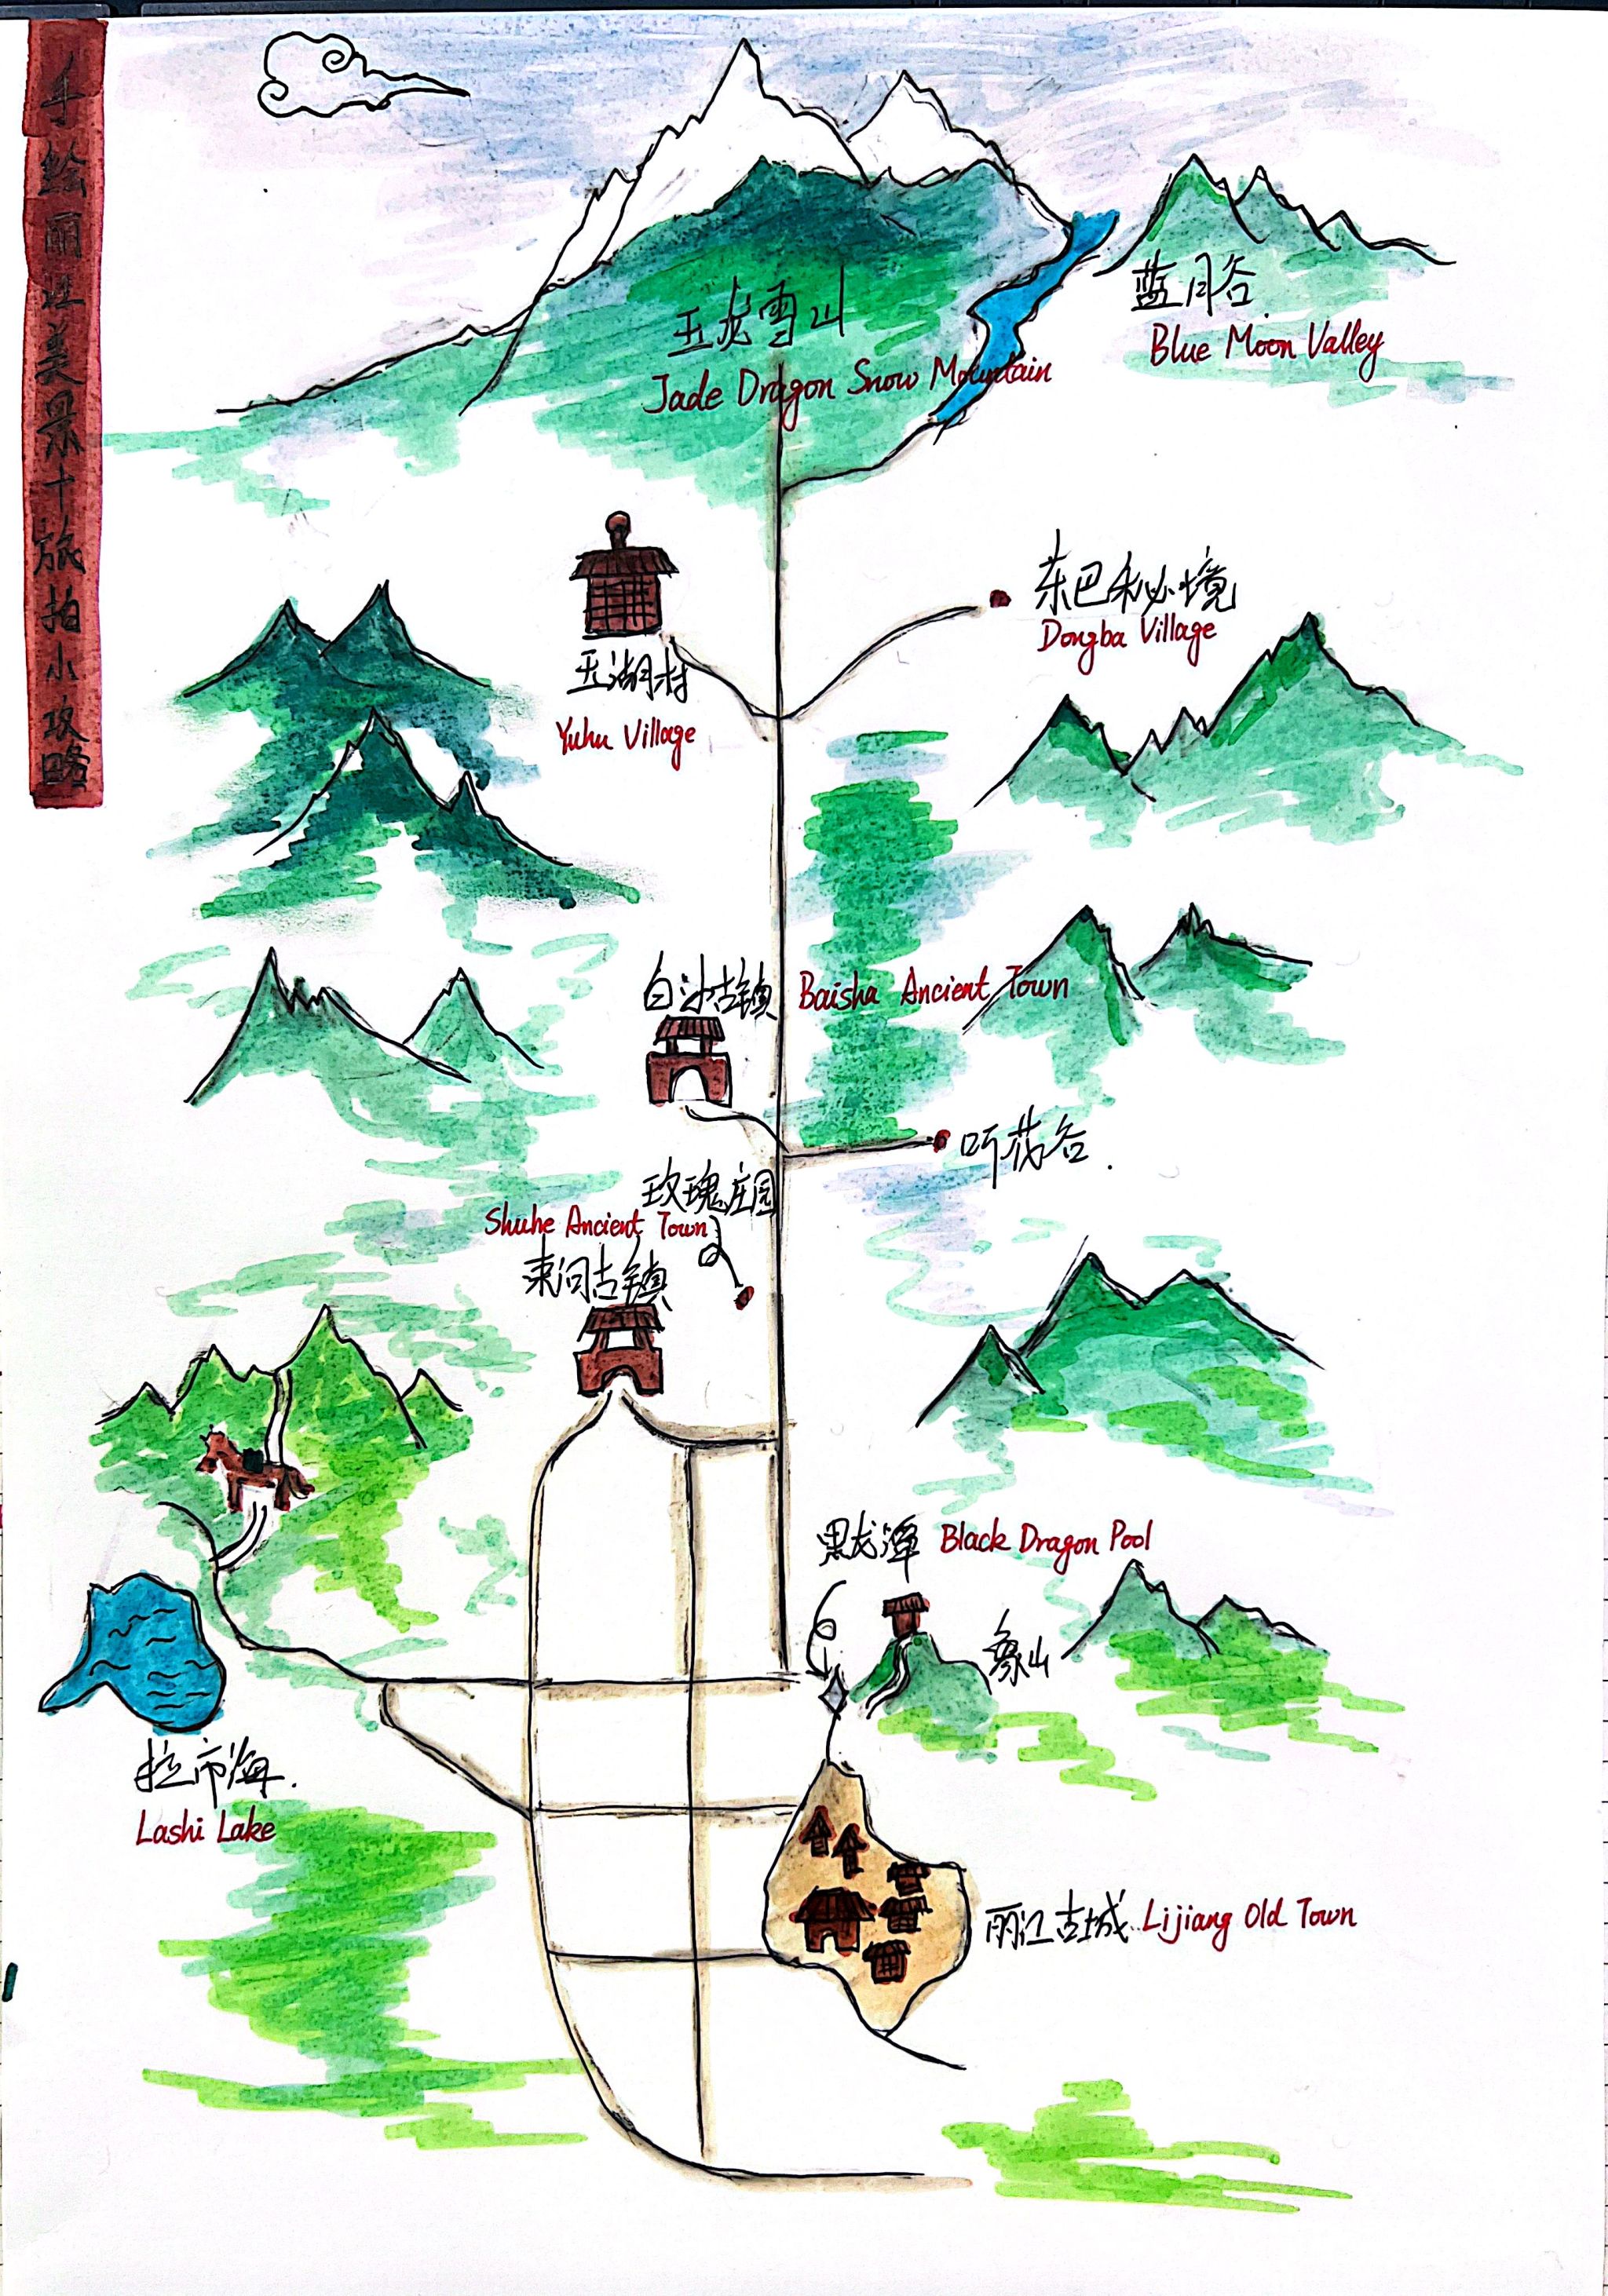 手绘丽江美景十旅拍小攻略
玉龙雪山
Jade Dragon Snow Mountain
蓝月谷
Blue Moon Valley
东巴秘境
Dongba Village
玉湖村
Yuhu Village
白沙古镇 Baisha Ancient Town
听花谷
玫瑰庄园
Shuhe Ancient Town
束河古镇
黑龙潭 Black Dragon Pool
象山
拉市海
Lashi Lake
丽江古城 Lijiang Old Town